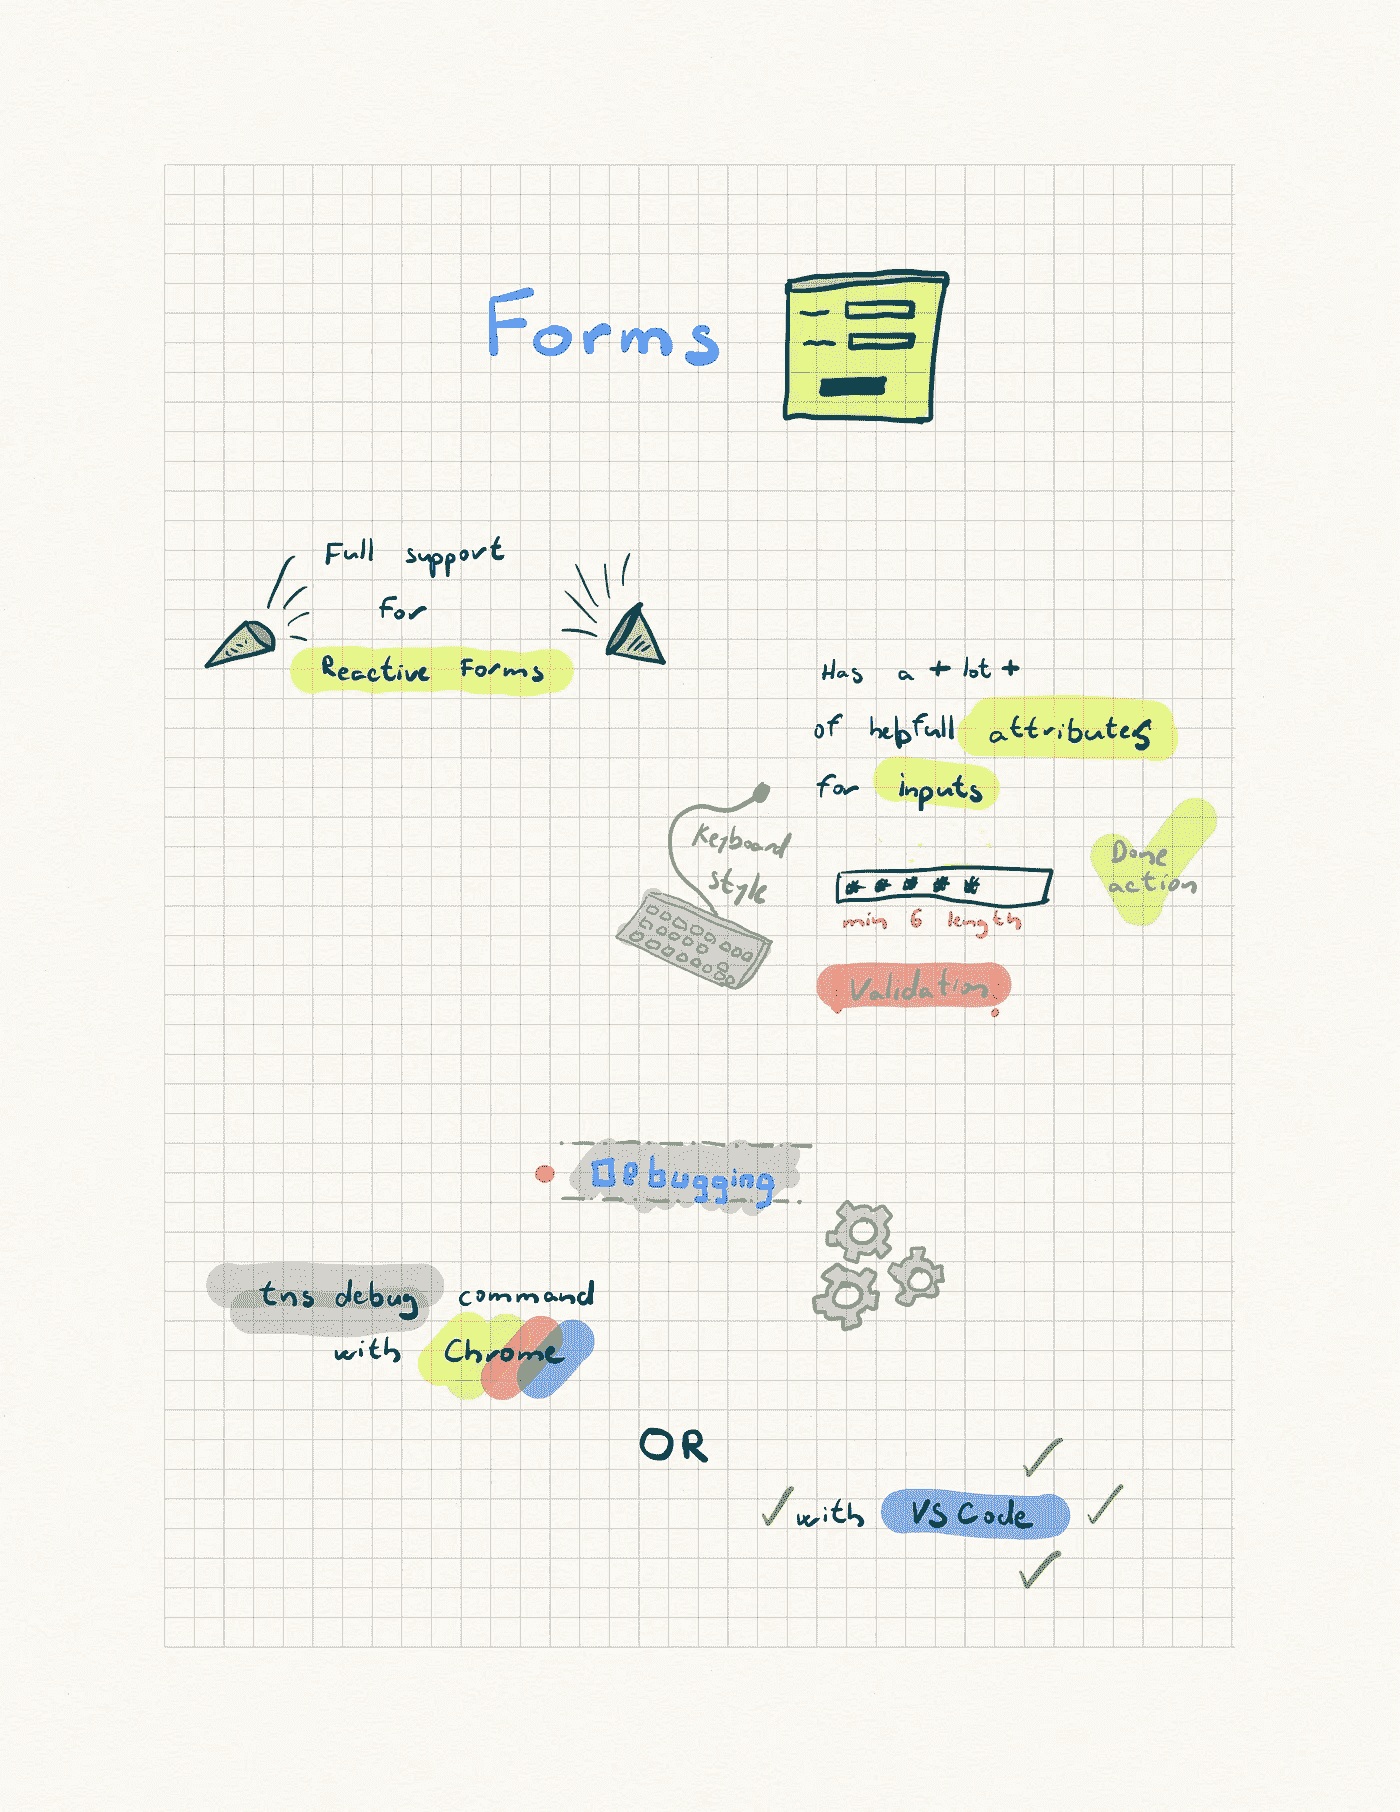 Forms
Full support
for
Reactive Forms
Has a + lot +
of helpfull attributes
for inputs
Keyboard
style
Done
action
*****
min 6 length
Validation
Debugging
tns debug command
with Chrome
OR
with VS Code